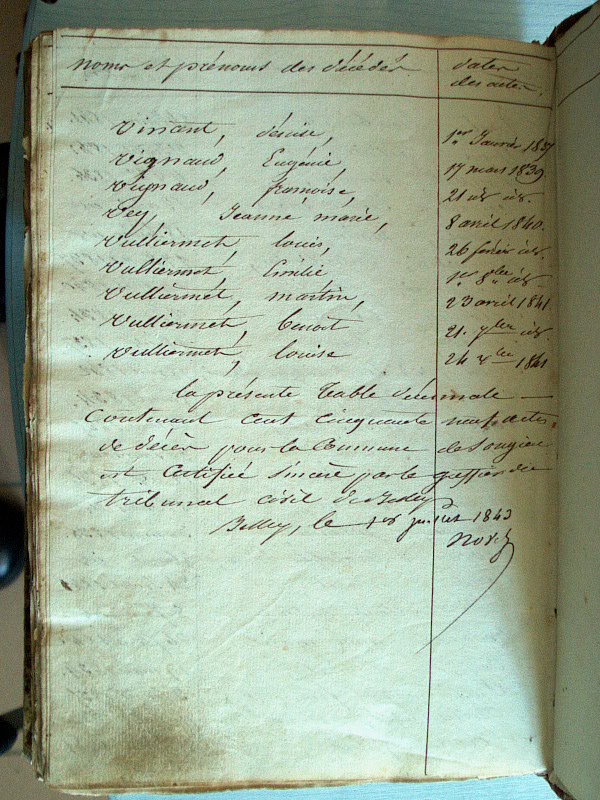 noms et prénoms des décédés. dates
des actes.
Vincent, dénise, 1er Janvier 1837
Vignaud, Eugénie 17 mars 1839
Vignaud, françoise, 21 id id.
Vey, Jeanne marie, 8 avril 1840.
Vulliermet, louis, 26 février id.
Vulliermet, Emilie 1er 8bre id.
Vulliermet, martin, 23 avril 1841.
Vulliermet, benoit 21. 7bre id.
Vulliermet, louise 24 8bre 1841
la présente Table décennale
Contenant cent cinquante neuf actes
de décès pour la Commune de Songieu
est Certifiée sincère par le greffier du
tribunal civil de Belley
Belley, le juillet 1843